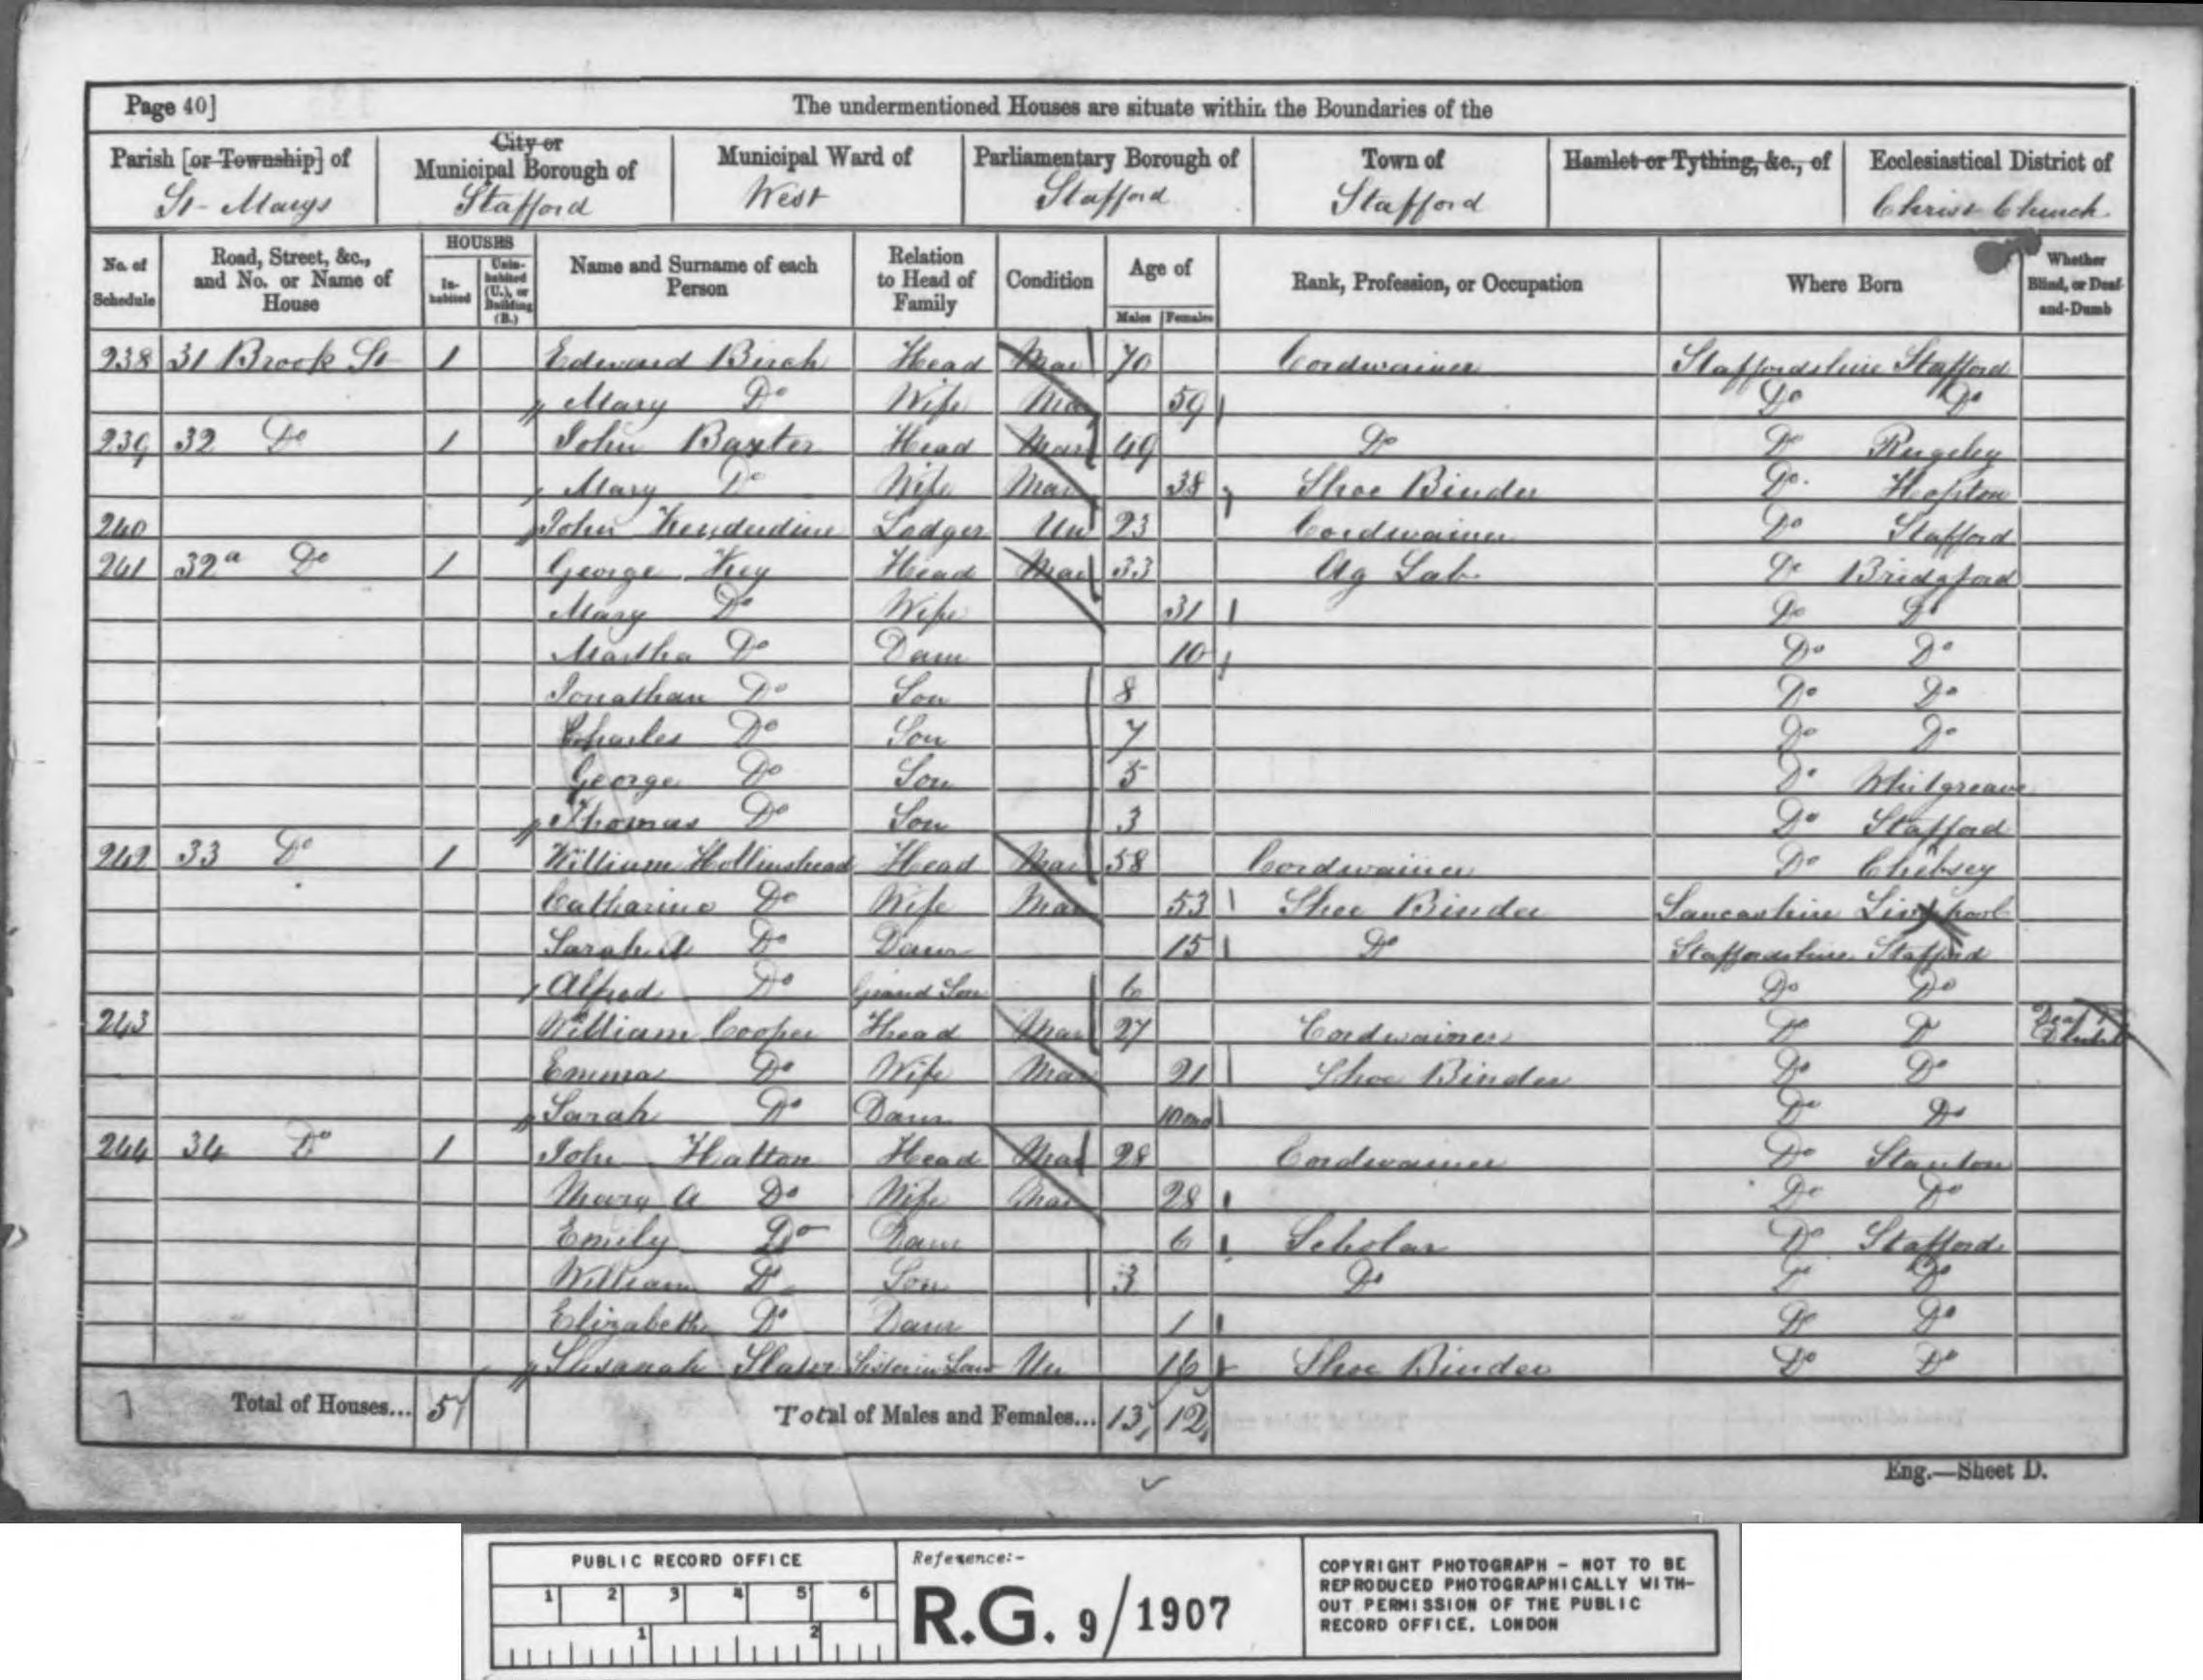 Page 40] The undermentioned Houses are situate within the Boundaries of the
Parish [or Township] of City or Municipal Borough of Municipal Ward of Parliamentary Borough of Town of Hamlet or Tything, &c., of Ecclesiastical District of
St Marys Stafford West Stafford Stafford Christ Church
No. of Schedule Road, Street, &c., and No. or Name of House HOUSES Inhabited Uninhabited (U.), or Building (B.) Name and Surname of each Person Relation to Head of Family Condition Age of Males Females Rank, Profession, or Occupation Where Born Whether Blind, or Deaf-and-Dumb
238 31 Brook St 1 Edward Birch Head Mar 70 Cordwainer Staffordshire Stafford
Mary Do Wife Mar 59 Do Do
239 32 Do 1 John Baxter Head Mar 49 Do Do Rugeley
Mary Do Wife Mar 38 Shoe Binder Do Hopton
240 John Lodger Un 23 Cordwainer Do Stafford
241 32a Do 1 George Key Head Mar 33 Ag Lab Do Bridgford
Mary Do Wife 31 Do Do
Martha Do Daur 10 Do Do
Jonathan Do Son 8 Do Do
Charles Do Son 7 Do Do
George Do Son 5 Do Whitgreave
Thomas Do Son 3 Do Stafford
242 33 Do 1 William Hollinshead Head Mar 58 Cordwainer Do Chebsey
Catharine Do Wife Mar 53 Shoe Binder Lancashire Liverpool
Sarah A Do Daur 15 Do Staffordshire Stafford
Alfred Do Grand Son 6 Do Do
243 William Cooper Head Mar 27 Cordwainer Do Do Deaf
Emma Do Wife Mar 21 Shoe Binder Do Do
Sarah Do Daur 10 mo Do Do
244 34 Do 1 John Hatton Head Mar 28 Cordwainer Do Stanton
Mary A Do Wife Mar 28 Do Do
Emily Do Daur 6 Scholar Do Stafford
William Do Son 3 Do Do Do
Elizabeth Do Daur 1 Do Do
Slater Sister in Law Un 16 Shoe Binder Do Do
Total of Houses... 5 Total of Males and Females... 13 12
Eng.—Sheet D.
PUBLIC RECORD OFFICE
1 2 3 4 5 6
1 2
Reference:-
R.G. 9/1907
COPYRIGHT PHOTOGRAPH - NOT TO BE
REPRODUCED PHOTOGRAPHICALLY WITH-
OUT PERMISSION OF THE PUBLIC
RECORD OFFICE, LONDON